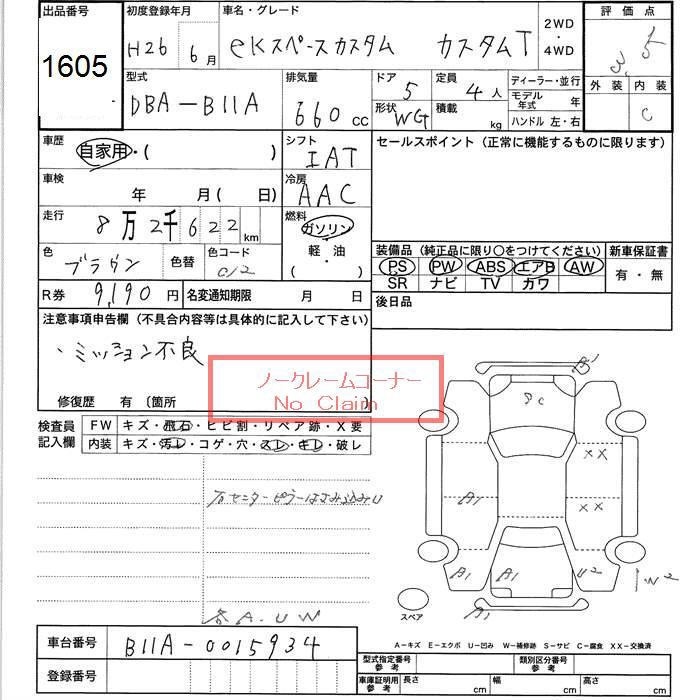 出品番号 1605
初度登録年月 H26 6月
車名・グレード eKスペースカスタム カスタムT
2WD・4WD
評価点 3.5
外装 内装 C
型式 DBA-B11A
排気量 660 cc
ドア 5
形状 WG
定員 4人
積載 kg
ディーラー・並行
モデル年式 年
ハンドル 左・右
車歴 自家用・( )
シフト IAT
セールスポイント(正常に機能するものに限ります)
車検 年 月(日)
冷房 AAC
走行 8万2千622km
燃料 ガソリン
軽・油
・( )
色 ブラウン 色替 色コード C12
装備品(純正品に限り〇をつけてください)
PS PW ABS エアB AW
SR ナビ TV カワ
新車保証書
有・無
R券 9,190円 名変通知期限 月 日
後日品
注意事項申告欄(不具合内容等は具体的に記入して下さい)
・ミッション不良
ノークレームコーナー
No Claim
修復歴 有〔箇所
検査員記入欄
FW キズ・飛石・ヒビ割・リペア跡・X要
内装 キズ・汚レ・コゲ・穴・スレ・キレ・破レ
右センターピラーはさみ込みU
各A.U.W
XX
XX
A1
A1 A1 U2 W2
A1
スペア
A-キズ E-エクボ U-凹み W-補修跡 S-サビ C-腐食 XX-交換済
車台番号 B11A-0015934
登録番号
型式指定番号 参考
類別区分番号 参考
車庫証明用 参考 長さ cm 幅 cm 高さ cm